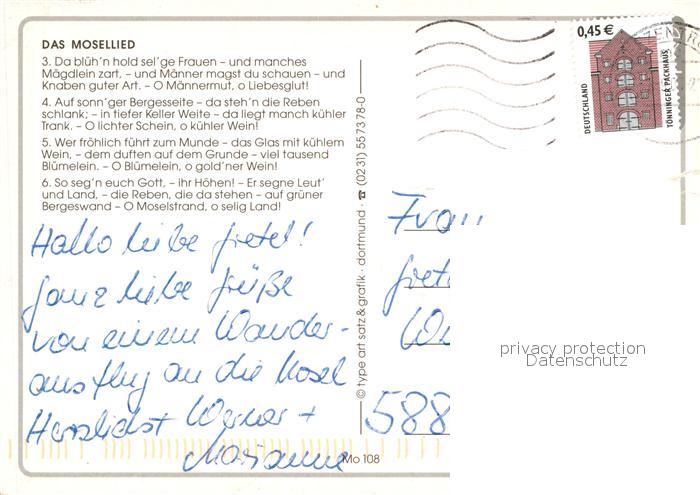 DAS MOSELLIED
3. Da blüh'n hold sel'ge Frauen – und manches
Mägdlein zart, – und Männer magst du schauen – und
Knaben guter Art. – O Männermut, o Liebesglut!
4. Auf sonn'ger Bergesseite – da steh'n die Reben
schlank; – in tiefer Keller Weite – da liegt manch kühler
Trank. – O lichter Schein, o kühler Wein!
5. Wer fröhlich führt zum Munde – das Glas mit kühlem
Wein, – dem duften auf dem Grunde – viel tausend
Blümelein. – O Blümelein, o gold'ner Wein!
6. So seg'n euch Gott, – ihr Höhen! – Er segne Leut'
und Land, – die Reben, die da stehen – auf grüner
Bergeswand – O Moselstrand, o selig Land!
Hallo liebe Gretel!
Ganz liebe Grüße
von einem Wander-
ausflug an die Mosel
Herzlichst Werner +
Marianne
© type art satz & grafik · dortmund · ☎ (0231) 55 73 78-0
Mo 108
0,45 €
DEUTSCHLAND
TÖNNINGER PACKHAUS
Frau
588
privacy protection
Datenschutz